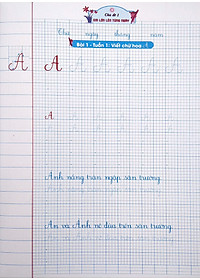 Chủ đề 1
EM LỚN LÊN TỪNG NGÀY
Thứ ngày tháng năm
Bài 1 - Tuần 1: Viết chữ hoa A
A A A A A A A
A
Ánh nắng tràn ngập sân trường.
An và Ánh nô đùa trên sân trường.